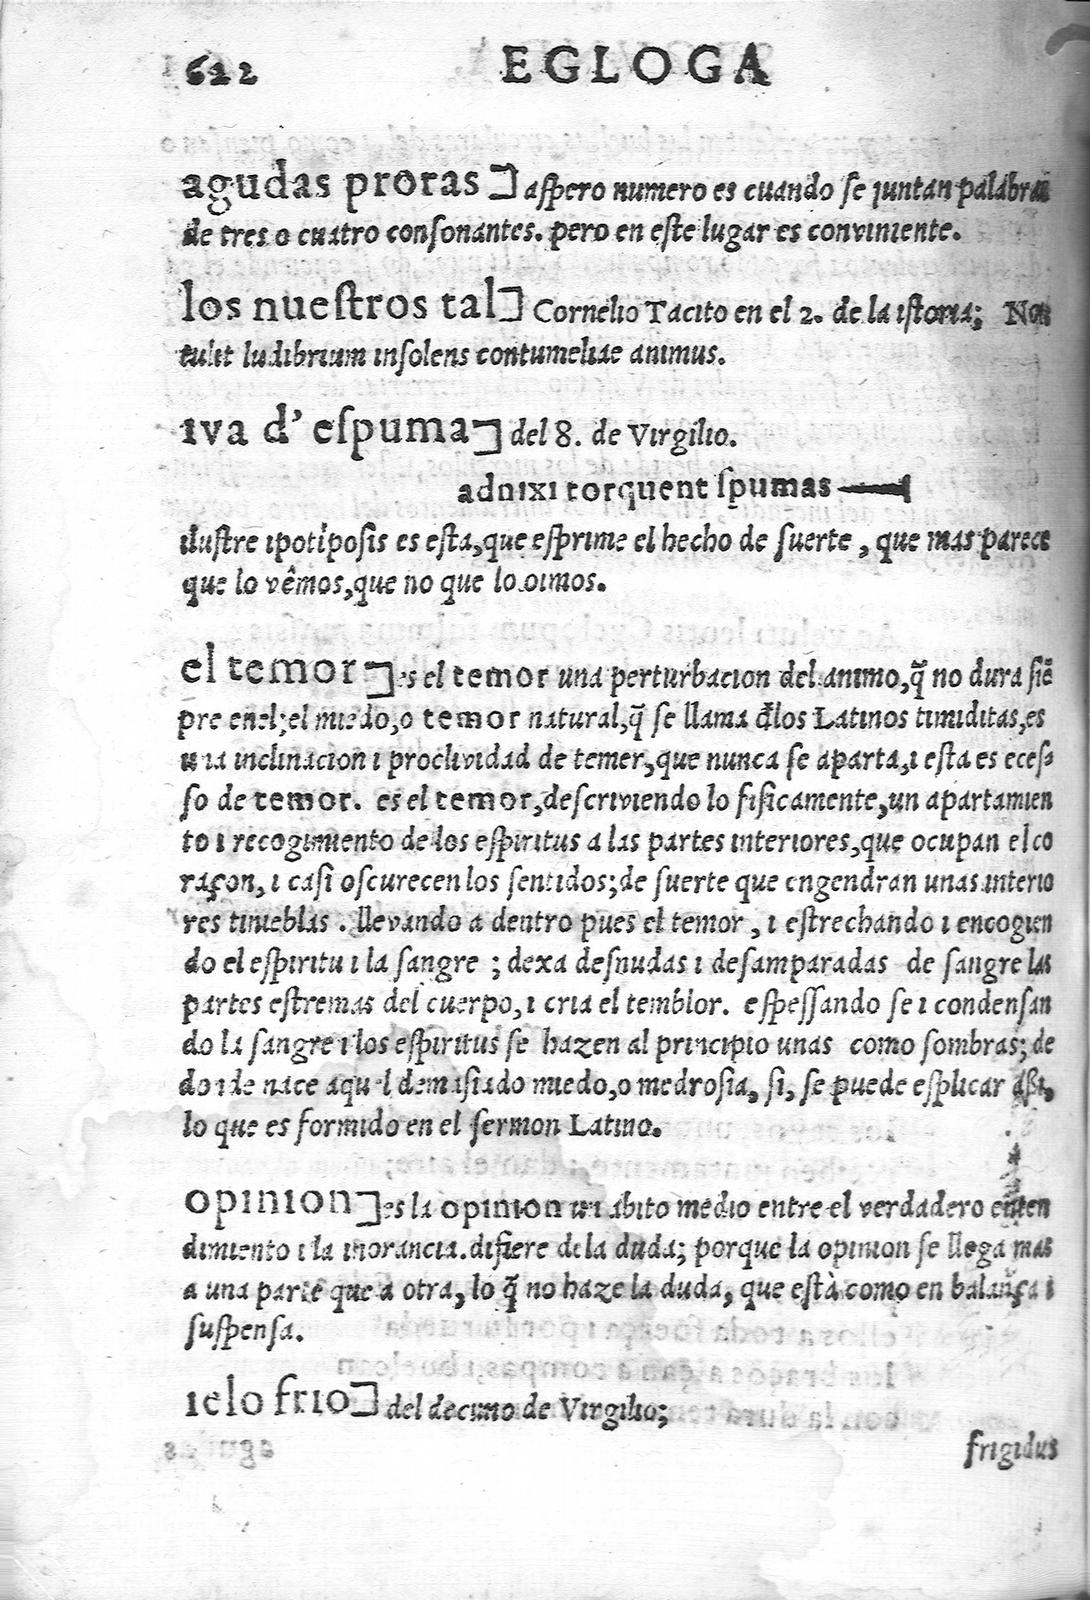 622 EGLOGA
agudas proras] aſpero numero es cuando ſe juntan palabras
de tres o cuatro conſonantes. pero en eſte lugar es conviniente.
los nueſtros tal] Cornelio Tacito en el 2. de la iſtoria; Non
tulit ludibrium inſolens contumeliae animus.
ıva d' eſpuma] del 8. de Virgilio.
adnıxı torquent ſpumas —
iluſtre ıpotiposis es eſta, que eſprime el hecho de ſuerte, que mas parece
que lo vêmos, que no que lo oımos.
el temor] es el temor una perturbacıon del anımo, q̃ no dura ſiẽ
pre enel; el mıedo, o temor natural, q̃ ſe llama đlos Latınos tımıdıtas, es
una ınclınacıon ı proclıvıdad de temer, que nunca ſe aparta, ı eſta es eceſ-
ſo de temor. es el temor, deſcrıvıendo lo fiſıcamente, un apartamıen
to ı recogımıento de los eſpırıtus a las partes ınterıores, que ocupan el co
raçon, ı caſi oſcurecen los ſentıdos; de ſuerte que engendran unas ınterıo
res tınıeblas. llevando a dentro pues el temor, ı eſtrechando ı encogıen
do el eſpırıtu ı la ſangre; dexa deſnudas ı deſamparadas de ſangre las
partes eſtremas del cuerpo, ı crıa el temblor. eſpeſſando ſe ı condenſan
do la ſangre ı los eſpırıtus ſe hazen al prıncıpıo unas como ſombras; de
donde nace aquel demaſıado mıedo, o medroſıa, ſi, ſe puede eſplıcar aſsı,
lo que es formıdo en el ſermon Latıno.
opınıon] es la opınıon un abıto medıo entre el verdadero enten
dımıento ı la ınorancıa. difiere de la duda; porque la opınıon ſe llega mas
a una parte que a otra, lo q̃ no haze la duda, que eſtà como en balança ı
ſuſpenſa.
ıelo frıo] del decımo de Vırgılıo;
frıgıdus